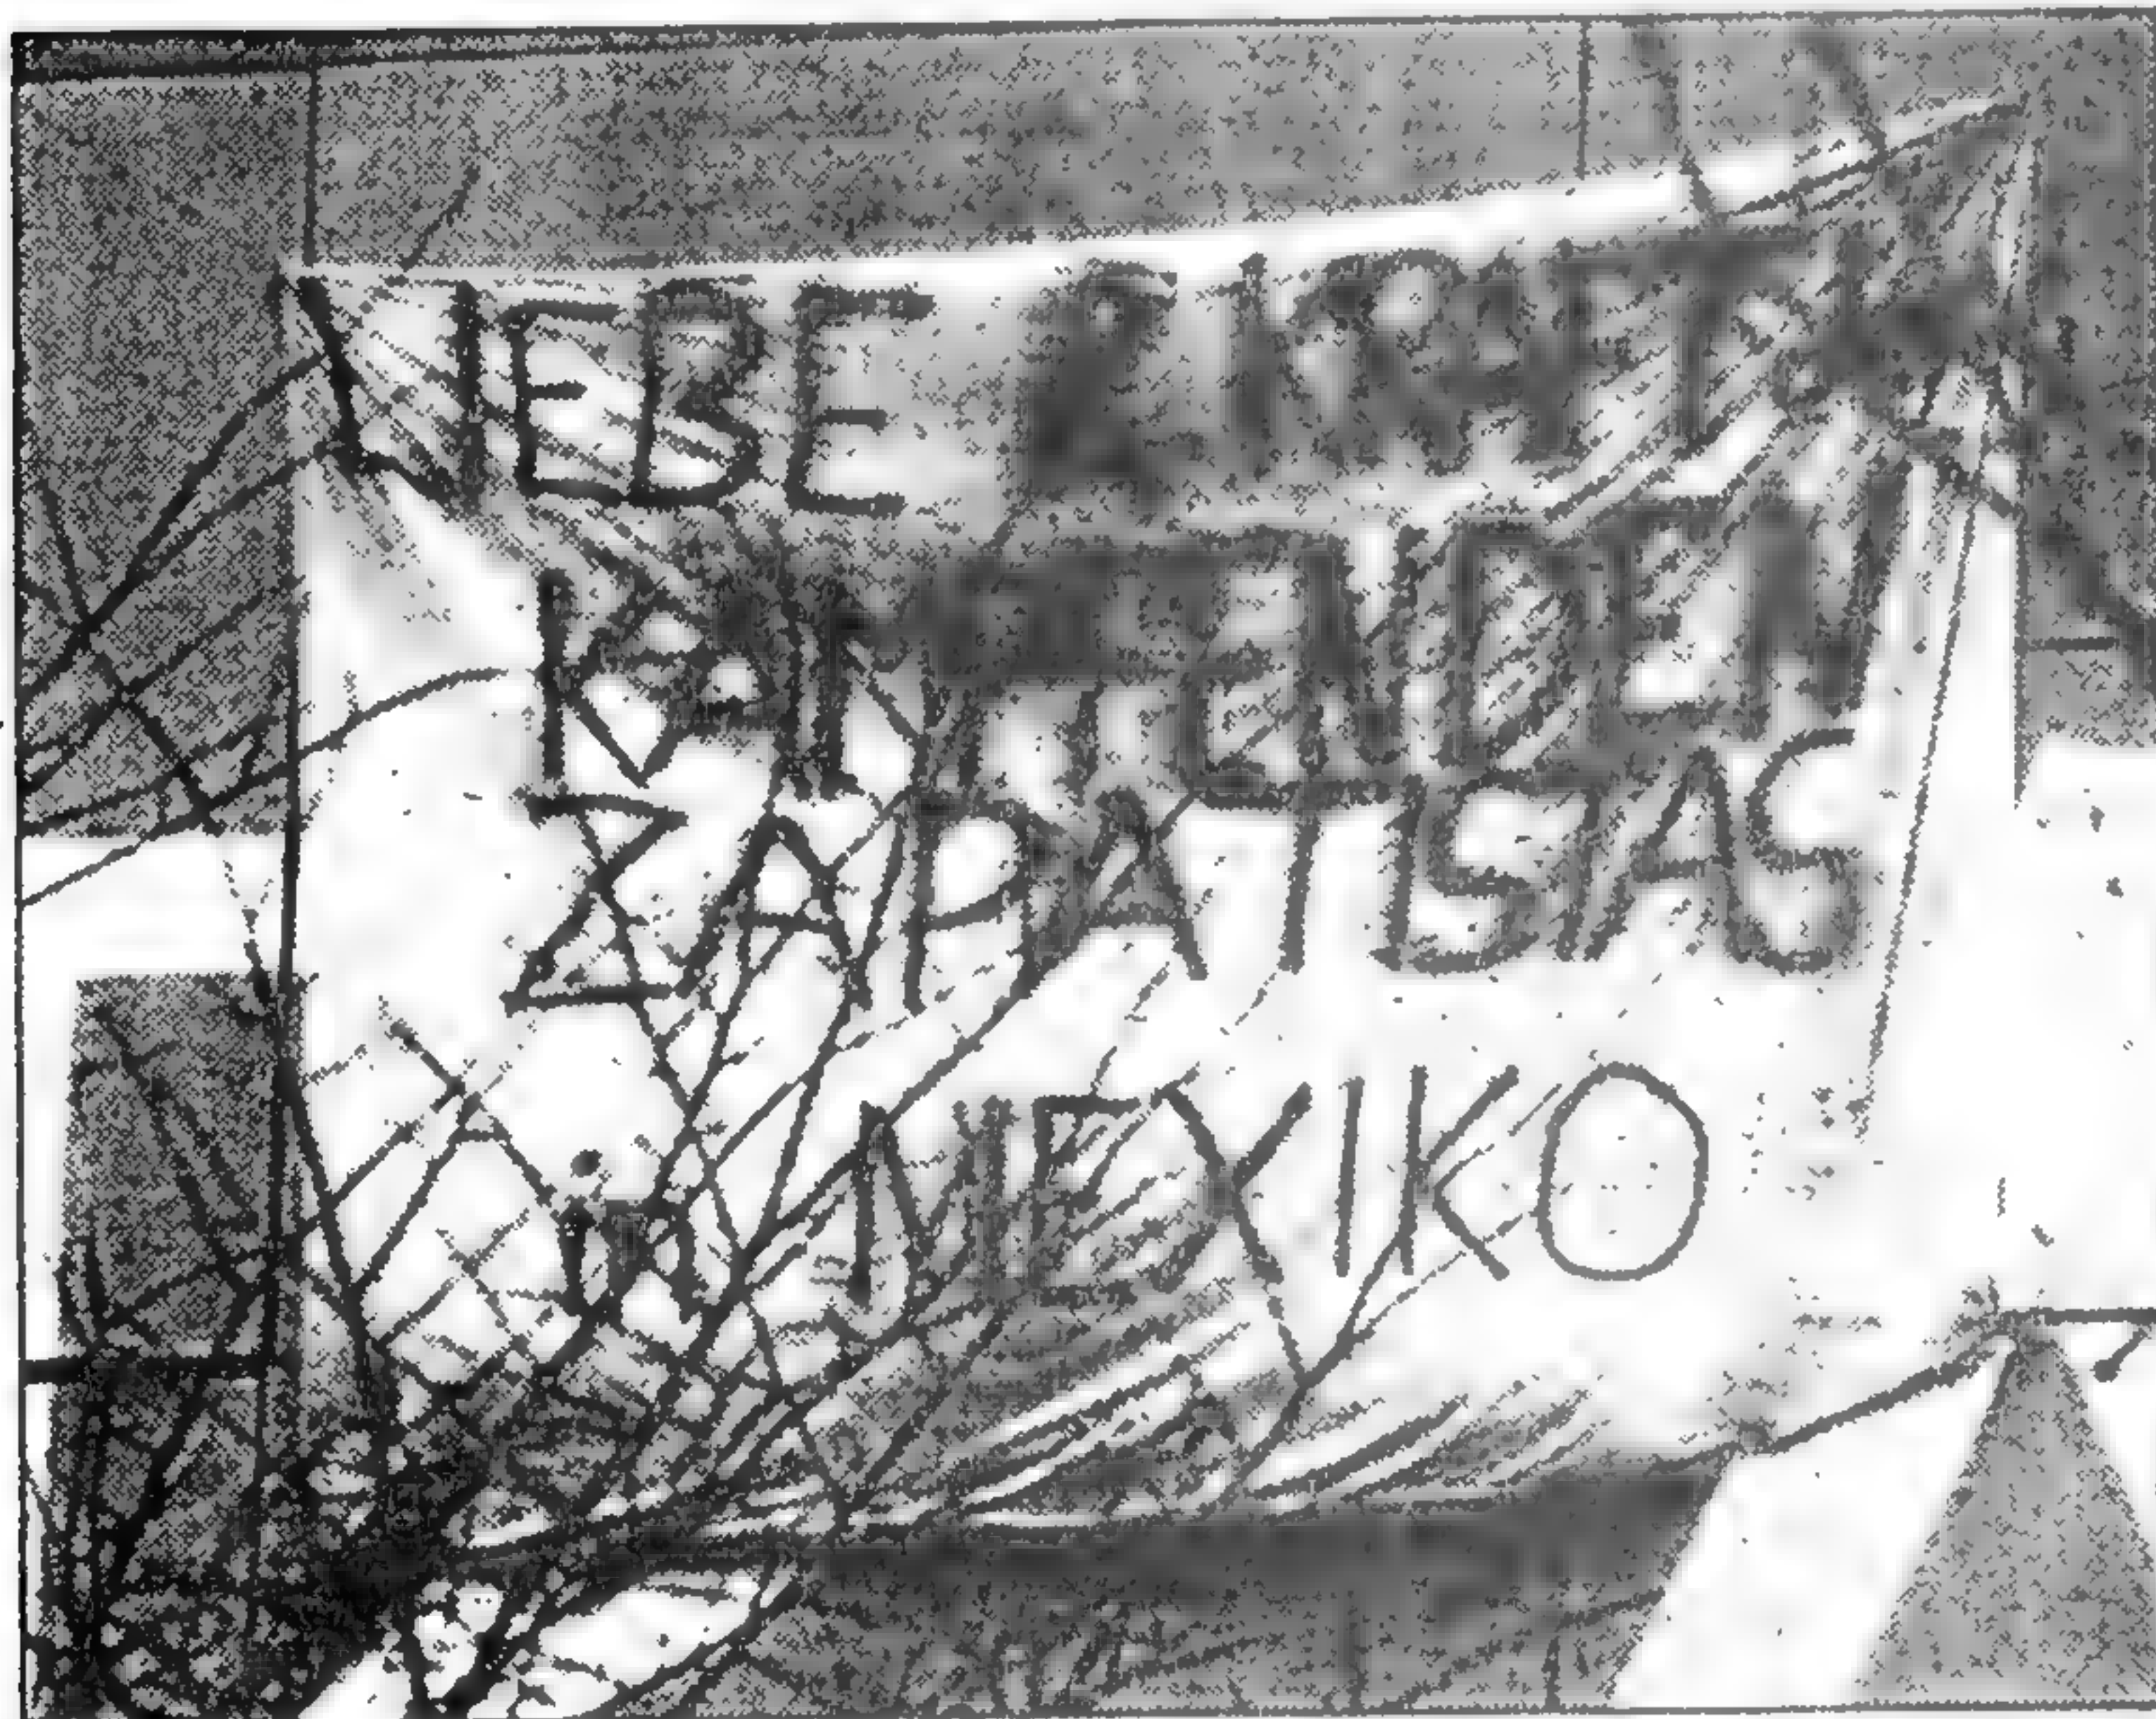 LIEBE & KRAFT
KÄMPFENDEN
ZAPATISTAS
in MEXIKO